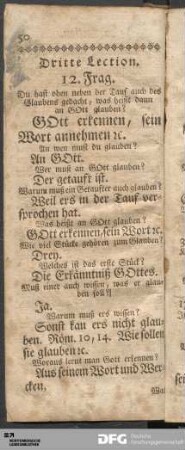 50
Dritte Lection.
12. Frag.
Du hast oben neben der Tauf auch des
Glaubens gedacht, was heißt dann
an GOtt glauben?
GOtt erkennen, sein
Wort annehmen ꝛc.
An wen must du glauben?
An GOtt.
Wer muß an GOtt glauben?
Der getauft ist.
Warum muß ein Getaufter auch glauben?
Weil ers in der Tauf ver-
sprochen hat.
Was heißt an GOtt glauben?
GOtt erkennen, sein Wort ꝛc.
Wie viel Stücke gehören zum Glauben?
Drey.
Welches ist das erste Stück?
Die Erkänntniß GOttes.
Muß einer auch wissen, was er glau-
ben soll?
Ja.
Warum muß ers wissen?
Sonst kan ers nicht glau-
ben. Röm. 10, 14. Wie sollen
sie glauben ꝛc.
Woraus lernt man Gott erkennen?
Aus seinem Wort und Wer-
cken.
DFG
Deutsche
Forschungsgemeinschaft